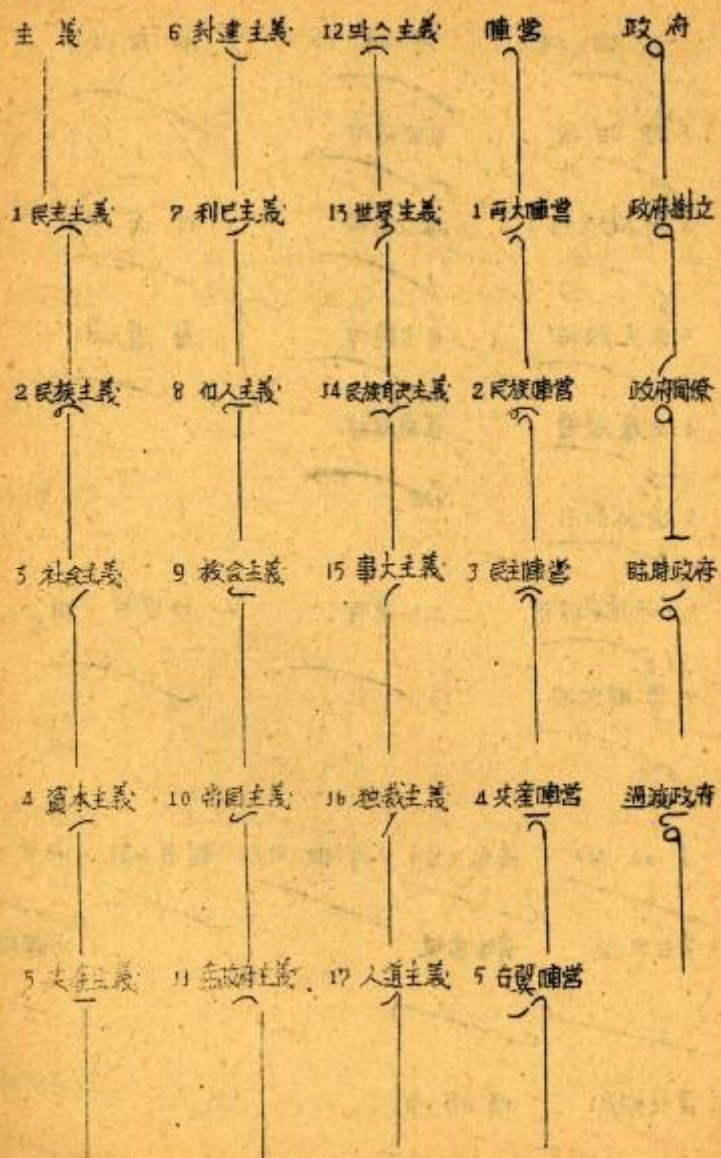 主義
1 民主主義
2 民族主義
3 社会主義
4 資本主義
5 共産主義
6 封建主義
7 利己主義
8 個人主義
9 機会主義
10 帝国主義
11 無政府主義
12 막스主義
13 世界主義
14 民族自決主義
15 事大主義
16 独裁主義
17 人道主義
陣営
1 両大陣営
2 民族陣営
3 民主陣営
4 共産陣営
5 右翼陣営
政府
政府樹立
政府閣僚
臨時政府
過渡政府